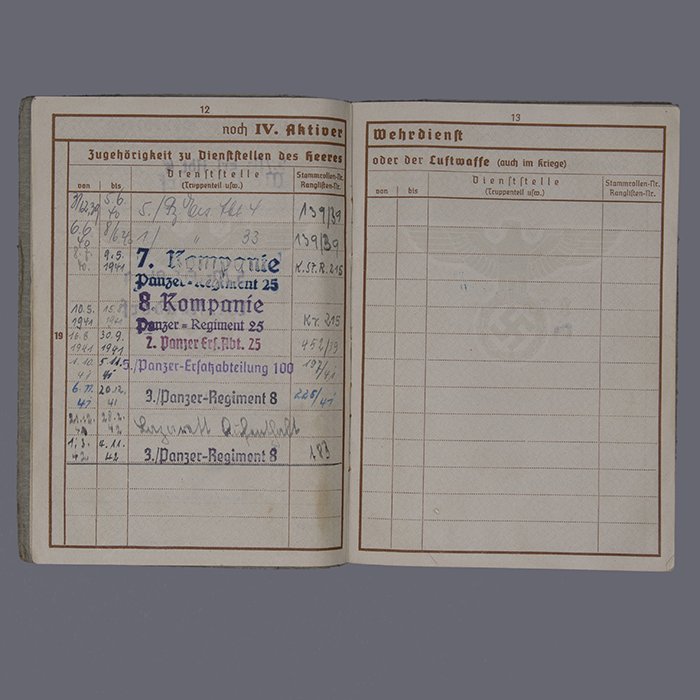 12
noch IV. Aktiver
Zugehörigkeit zu Dienststellen des Heeres
von
bis
Dienststelle
(Truppenteil usw.)
Stammrollen-Nr.
Ranglisten-Nr.
19
5.6.
40
139/39
6.6.
40
33
139/39
9.5.
1941
7. Kompanie
Panzer-Regiment 25
K.St.R. 215
10.5.
1941
8. Kompanie
Panzer-Regiment 25
Kr. 215
16.8.
1941
30.9.
1941
2. Panzer Ers. Abt. 25
452/39
1.10.
41
5.11.
41
5./Panzer-Ersatzabteilung 100
197/41
6.11.
41
20.12.
41
3./Panzer-Regiment 8
226/41
21.12.
28.2.
42
Lazarett Aufenthalt
1.3.
42
4.11.
42
3./Panzer-Regiment 8
183
13
Wehrdienst
oder der Luftwaffe (auch im Kriege)
von
bis
Dienststelle
(Truppenteil usw.)
Stammrollen-Nr.
Ranglisten-Nr.